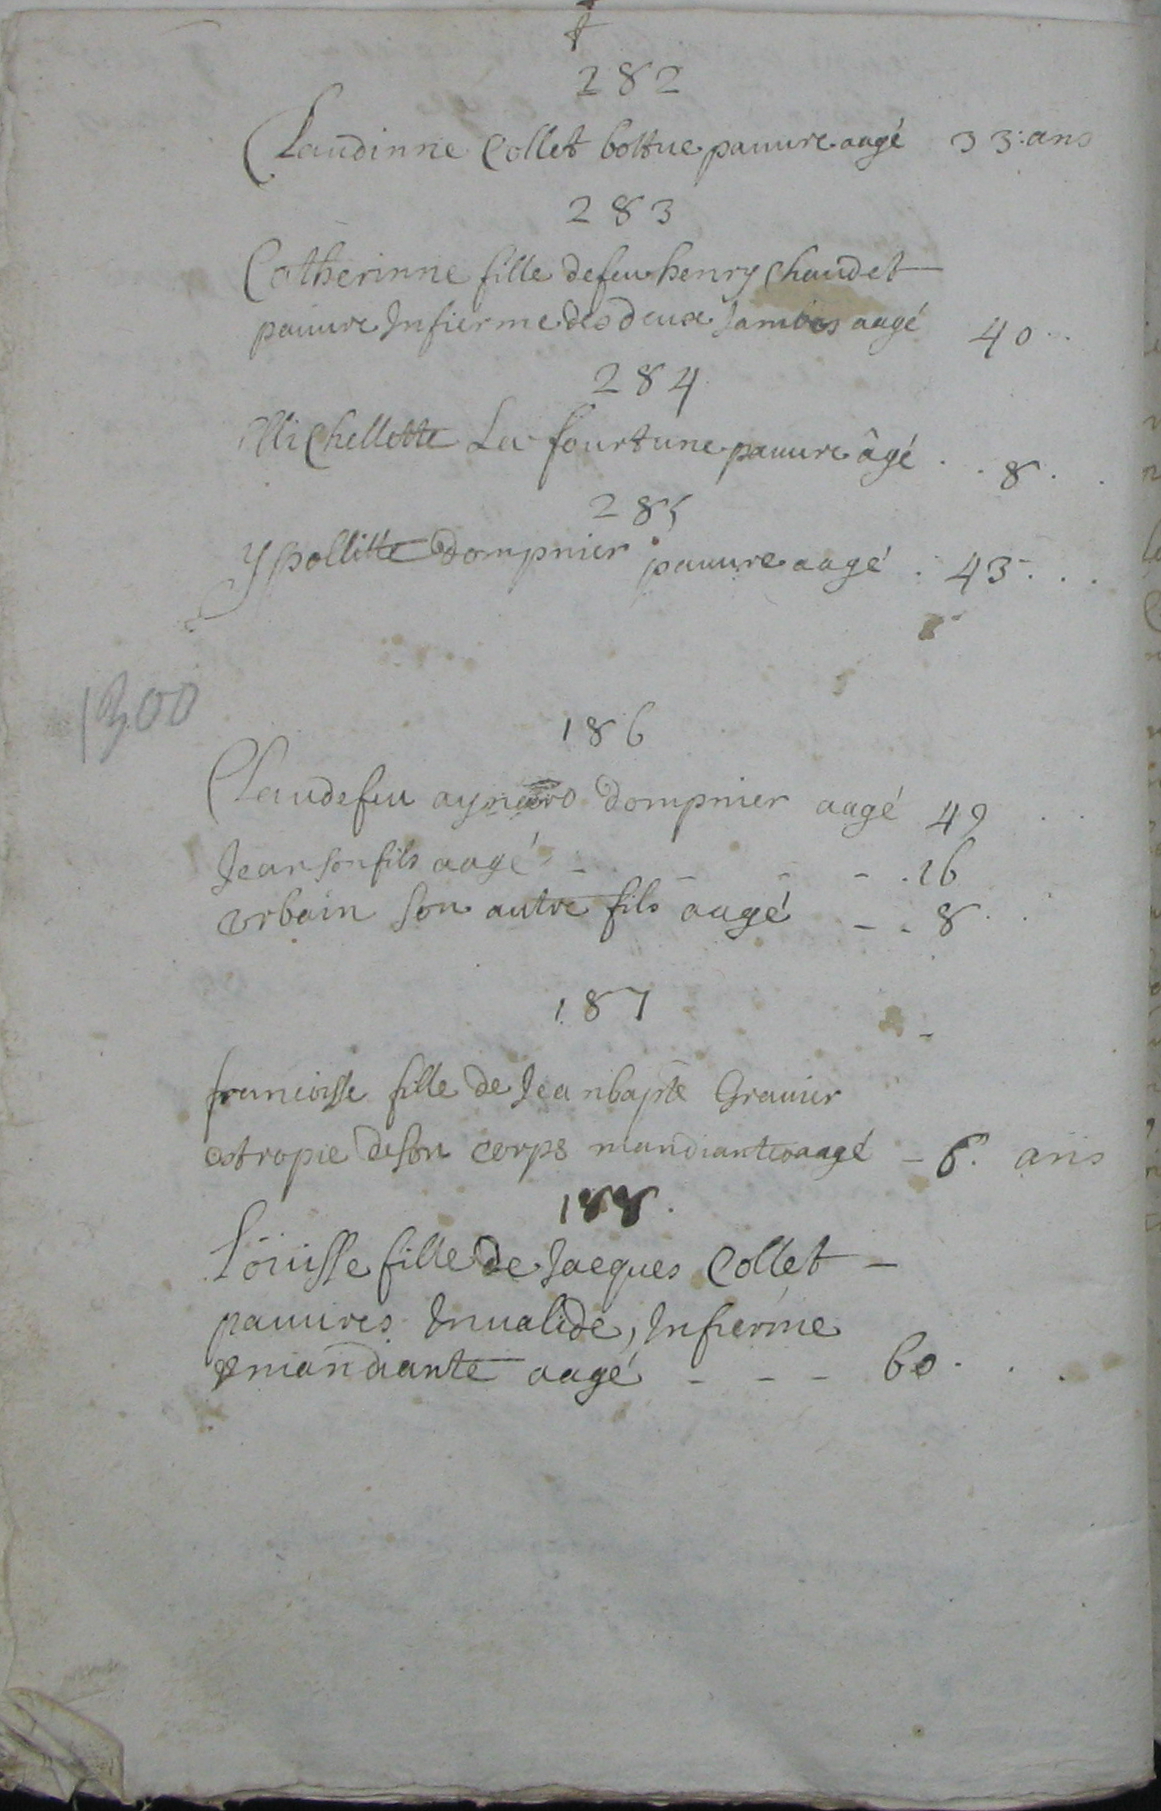 282
Claudinne Collet bottue pauure aagé 33: ans
283
Catherinne fille de feu henry Chaudet
pauure Infierme des deux Jambes aagé 40
284
Michellette La fourtune pauure âgé 8
285
Yppollitte Dompnier pauure aagé 43
1300
186
Claude feu aynard Dompnier aagé 49
Jean son fils aagé 16
Vrbain son autre fils aagé 8
187
francoisse fille de Jean bapte Grauier
estropie de son corps mandiante aagé 6. ans
188.
Loüisse fille de Jacques Collet
pauures Inualide, Infierme
& mandiante aagé 60